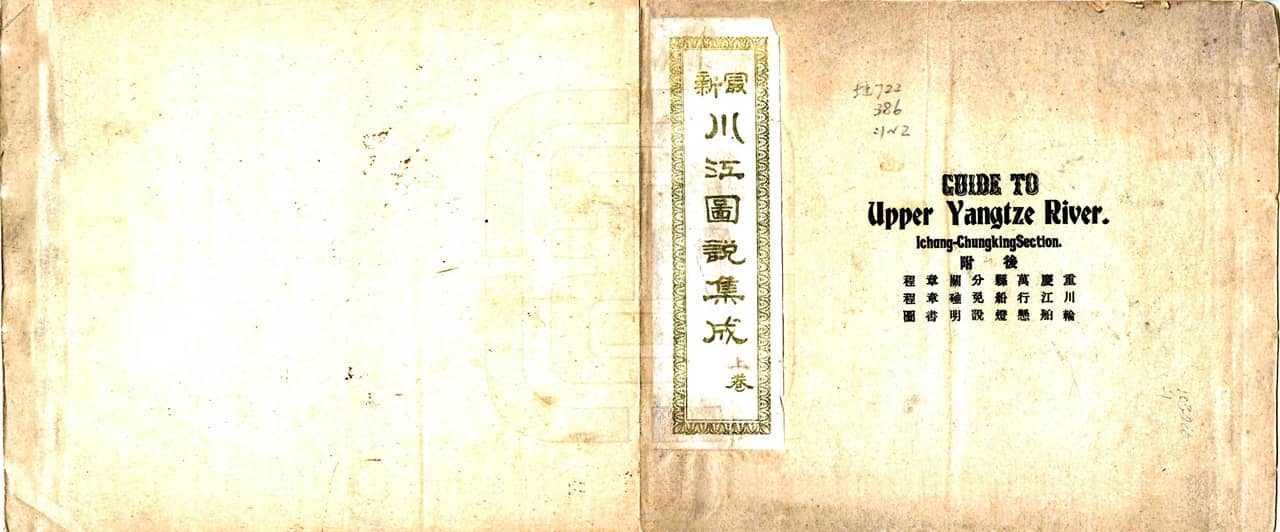 最新
川江圖說集成
上卷
地722
386
:1~2
GUIDE TO
Upper Yangtze River.
Ichang-Chungking Section.
後附
重慶萬縣分關章程
川江行船免碰章程
輪船懸燈說明書圖